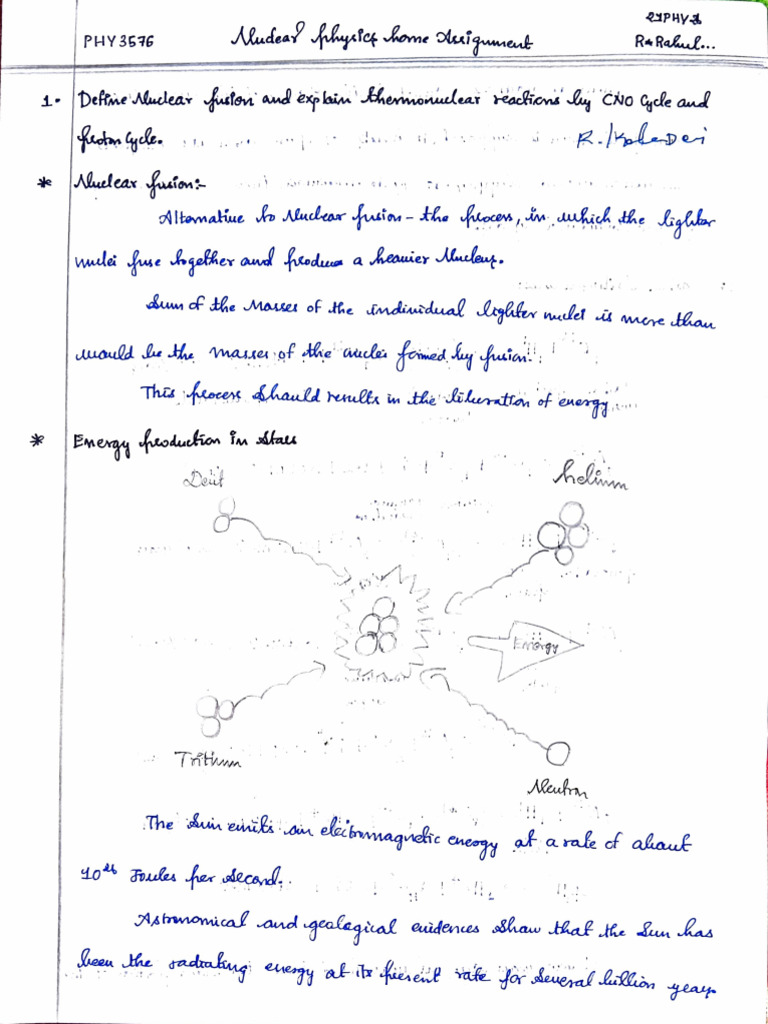 21PHY
PHY3576 Nuclear physics home Assignment R Rahul...
1. Define Nuclear fusion and explain thermonuclear reactions by CNO Cycle and
Proton Cycle.
* Nuclear fusion:-
Alternative to Nuclear fusion - the process, in which the lighter
nuclei fuse together and produces a heavier Nucleus.
Sum of the Masses of the individual lighter nuclei is more than
would be the masses of the nuclei formed by fusion.
This process should results in the liberation of energy
* Energy production in Stars
Deut Helium
Energy
Tritium
Neutron
The Sun emits an electromagnetic energy at a rate of about
10²⁶ Joules per second.
Astronomical and geological evidences Show that the Sun has
been the radiating energy at its present rate for Several billion years